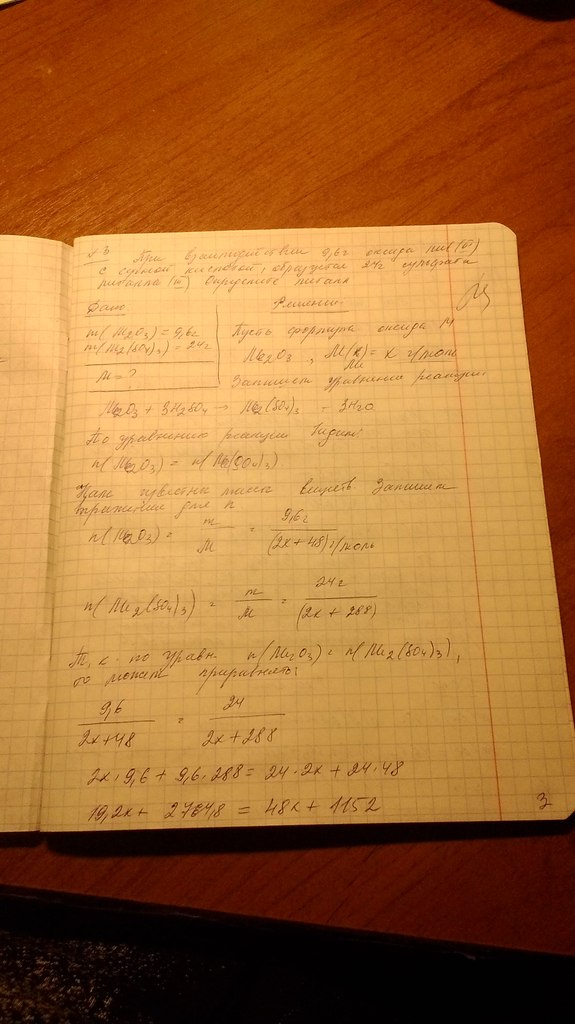 № 3 При взаимодействии 9,6г оксида мет(III)
с серной кислотой, образуется 24г сульфата
металла (III) Определите металл
Дано
Решение
m(Me2O3) = 9,6г
m(Me2(SO4)3) = 24г
M = ?
Пусть формула оксида
Me2O3 , M(Me) = x г/моль
Запишем уравнение реакции:
Me2O3 + 3H2SO4 → Me2(SO4)3 - 3H2O
По уравнению реакции видим:
n(Me2O3) = n(Me(SO4)3)
Нам известны массы веществ. Запишем
выражение для n
n(Me2O3) = m/M = 9,6г/(2x+48)г/моль
n(Me2(SO4)3) = m/M = 24г/(2x + 288)
Т, к. по уравн n(Me2O3) = n(Me2(SO4)3),
то может приравнять:
9,6/2x+48 = 24/2x+288
2x·9,6 + 9,6·288 = 24·2x + 24·48
19,2x + 2764,8 = 48x + 1152
3